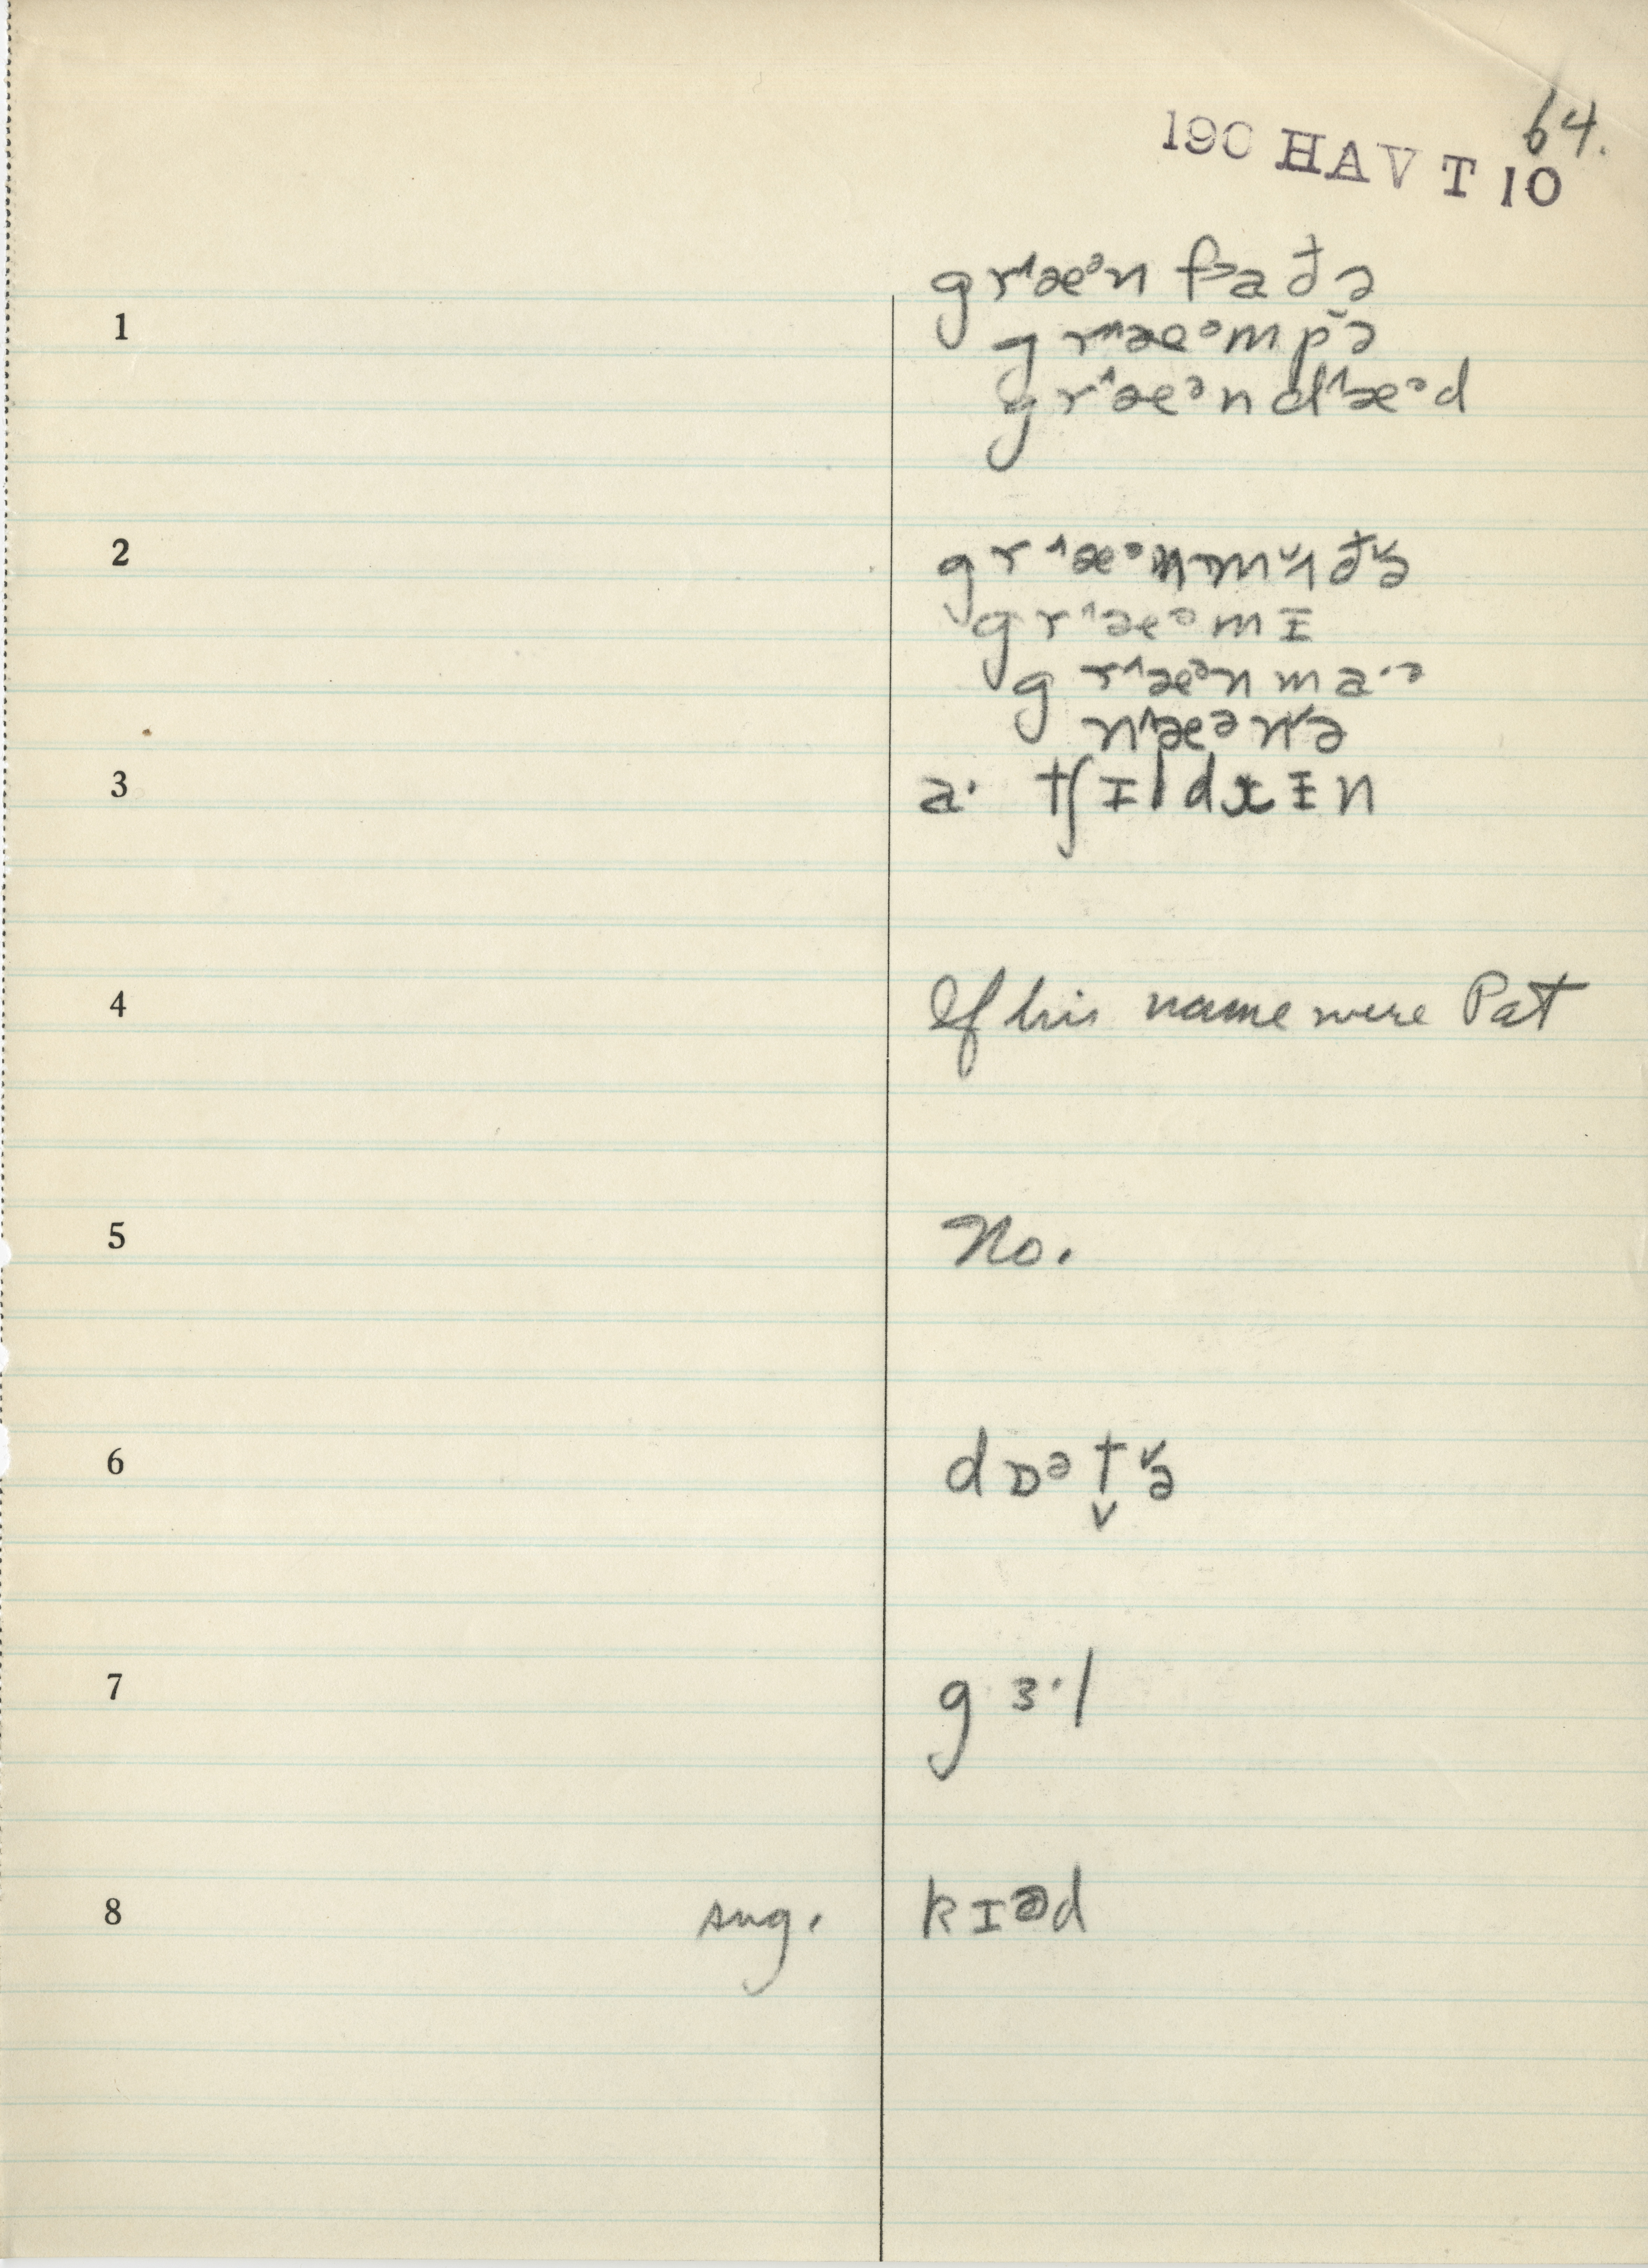 64.
190 HAVT 10
gr˄æᵊn f˃aðə
1 gr˄æᵊmpə̆
gr˄æᵊnd˄æᵊd
2 gr˄æᵊnm˅ʌðə
gr˄æᵊmɪ
gr˄æᵊn maˑə
n˄æᵊnə
3 aˑ tʃɪldrɨn
4 If his name were Pat
5 No.
6 dɒᵊt̬ə
7 gɜˑl
8 sug. kɪᵊd